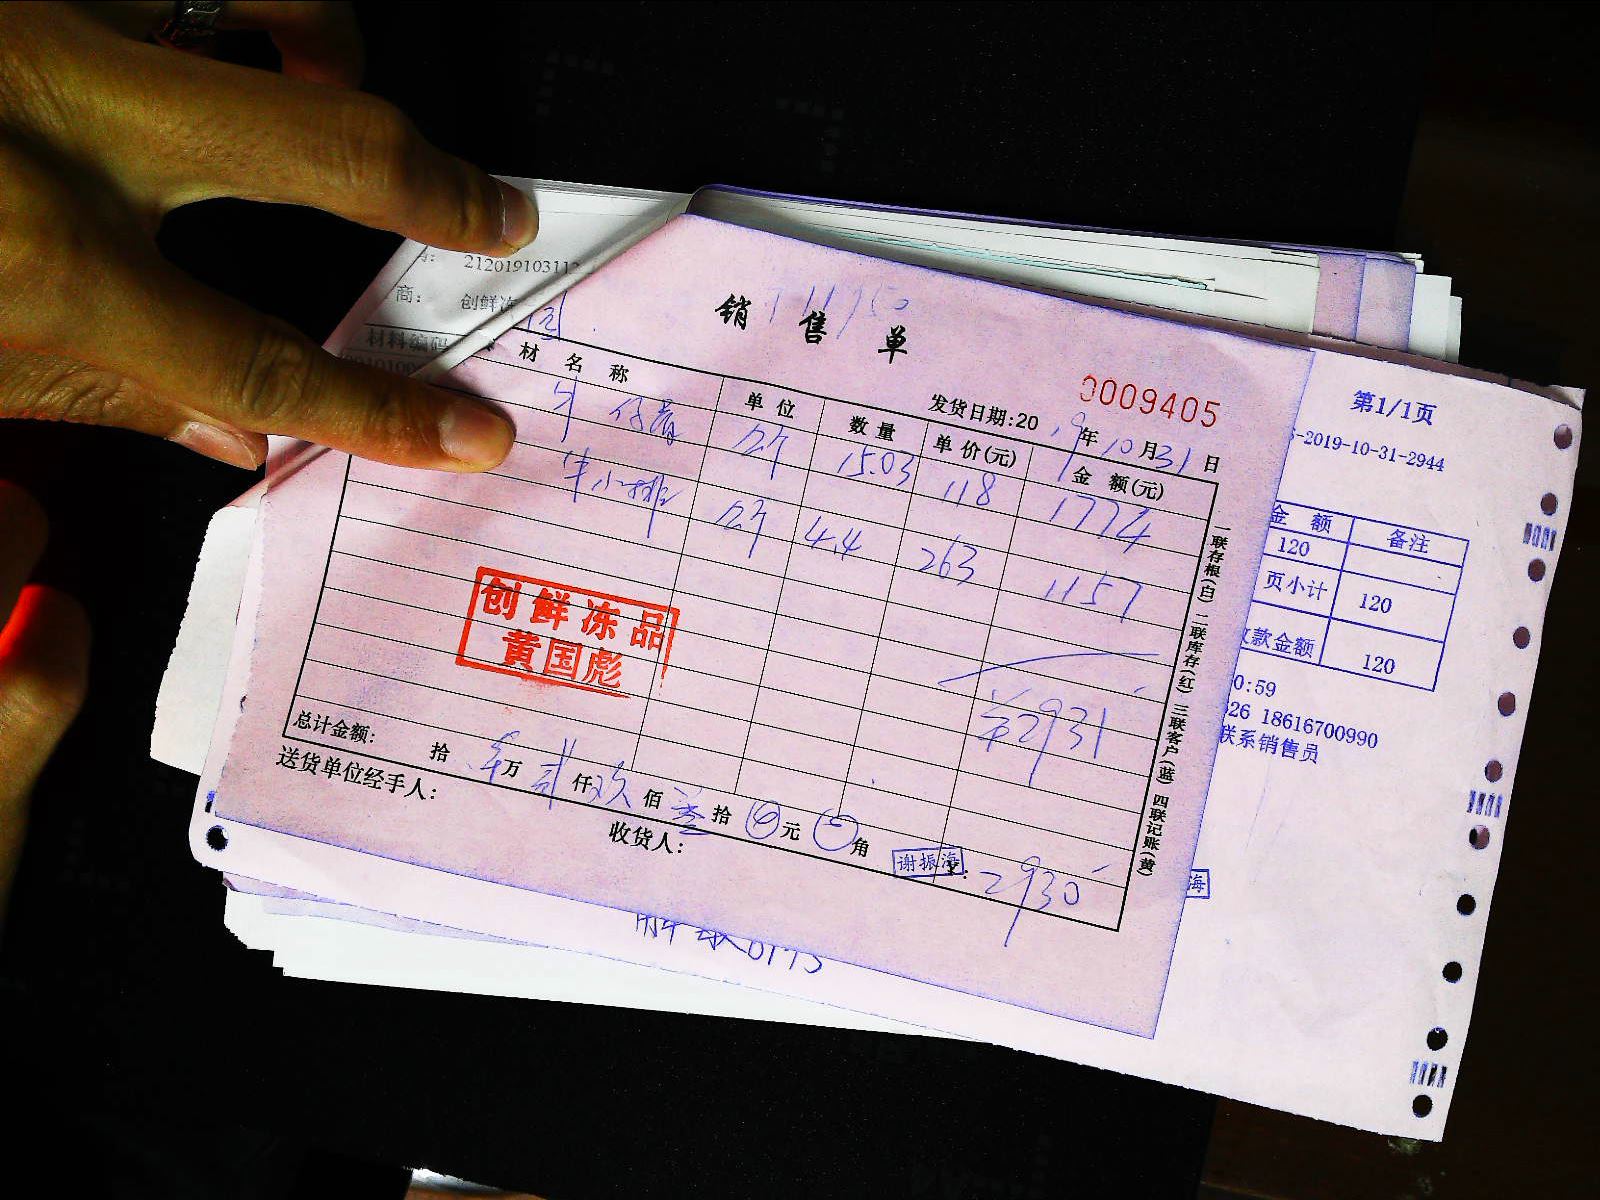 212019103112
商： 创鲜冻
材料编码
销售单
0009405
发货日期:2019年10月31日
材名称 单位 数量 单价(元) 金额(元)
牛仔骨 斤 15.03 118 1774
牛小排 斤 4.4 263 1157
¥2931
创鲜冻品
黄国彪
总计金额: 拾 零万 贰仟玖佰叁拾 元 角
2930
送货单位经手人:
收货人:
谢振海
一联存根(白) 二联库存(红) 三联客户(蓝) 四联记账(黄)
第1/1页
-2019-10-31-2944
金额 备注
120
页小计 120
款金额 120
0:59
18616700990
联系销售员
海